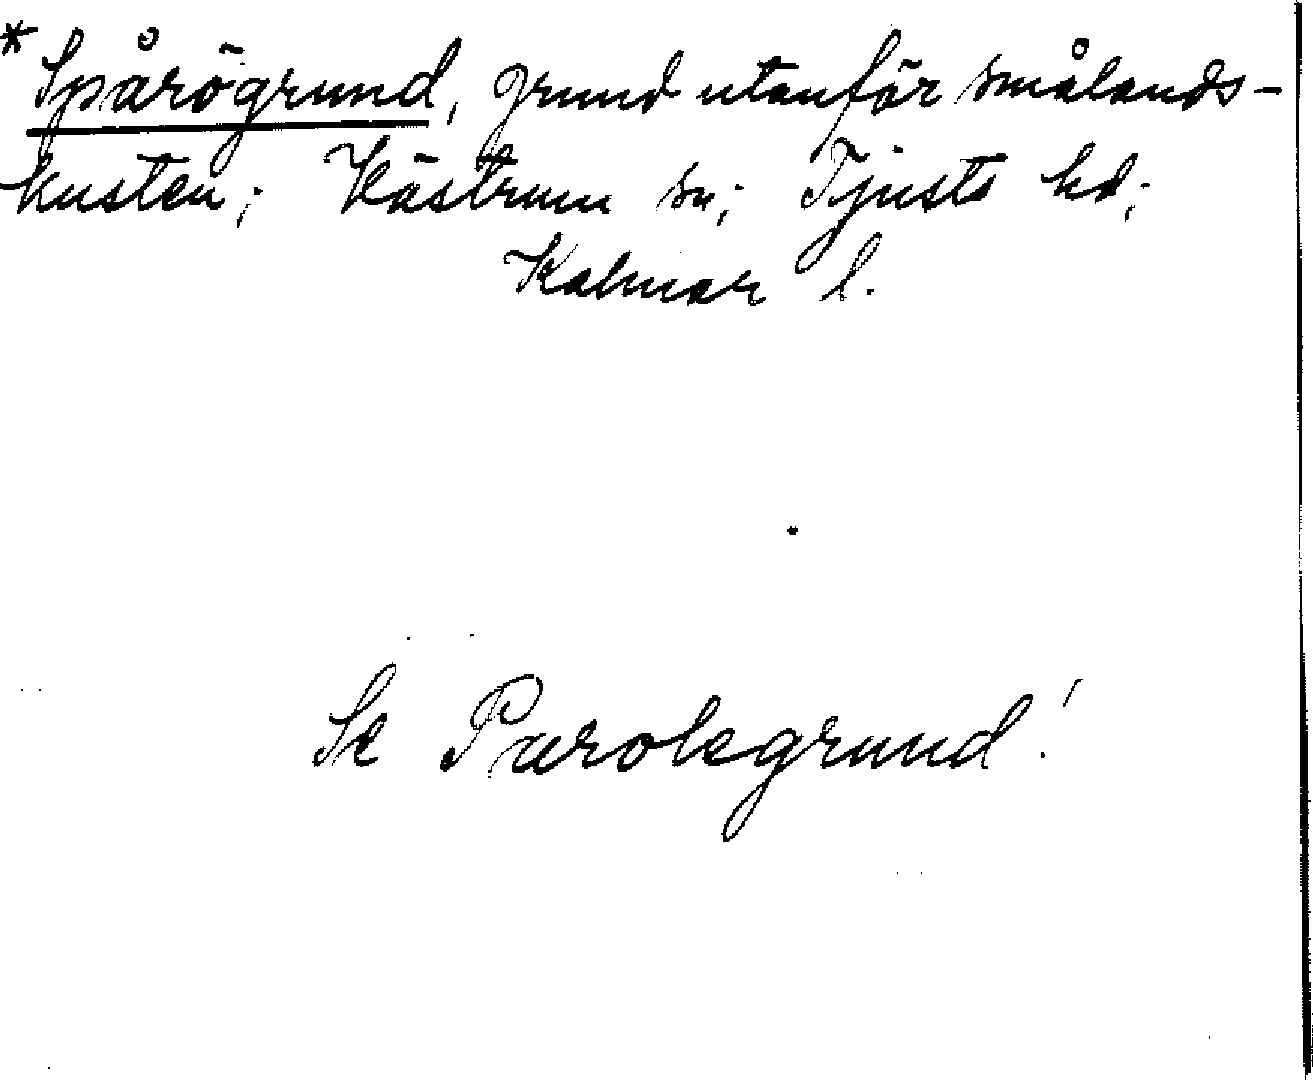 * Spårögrund, grund utanför smålands-
kusten; Västrum sn; Tjusts hd;
Kalmar l.
Se Parolegrund!